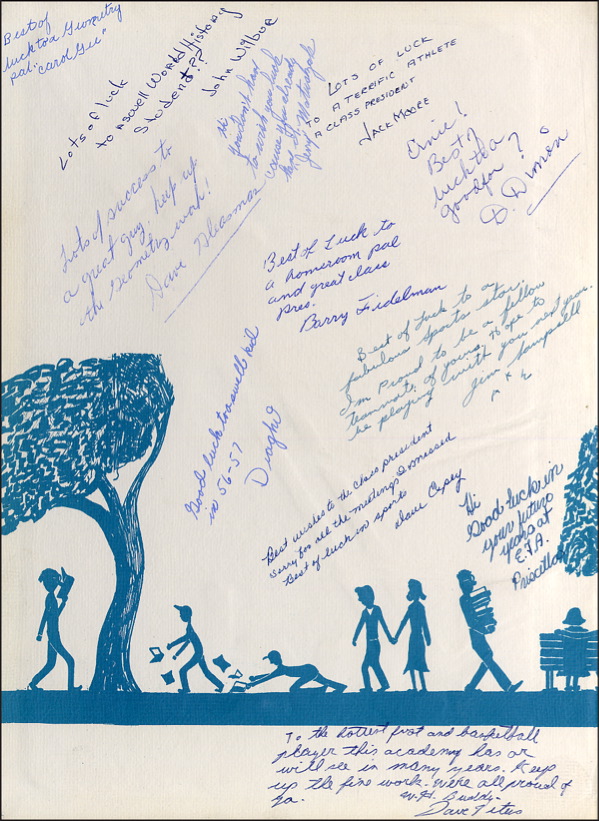 Best of
luck to a Geometry
pal.
"Carol Gee"
Lots of luck
to a swell World History
Student??
John Wilbur
Hi
You don't have
to wish you luck
cause you already
have it.
Jerry
LOTS OF LUCK
TO A TERRIFIC ATHLETE
A CLASS PRESIDENT
JACK MOORE
Ernie!
Best of
luck to a
good for ?
D. Dimon
Lots of success to
a great guy, keep up
the Geometry work!
Dave Gleasman
Best of Luck to
a homeroom pal
and great class
pres.
Barry Fidelman
Best of luck to a
fabulous sports star.
I'm proud to be a fellow
teammate of yours. Hope to
be playing with you next year.
Jim
Good luck to a swell kid
in 56-57
Best wishes to the class president
Sorry for all the meetings I missed
Best of luck in sports
Dave Casey
Hi
Good luck in
your future
years at
E.F.A.
Priscilla
To the hottest foot and basketball
player this academy has or
will see in many years. Keep
up the fine work. We're all proud of
ya.
Buddy-
Dave Titus